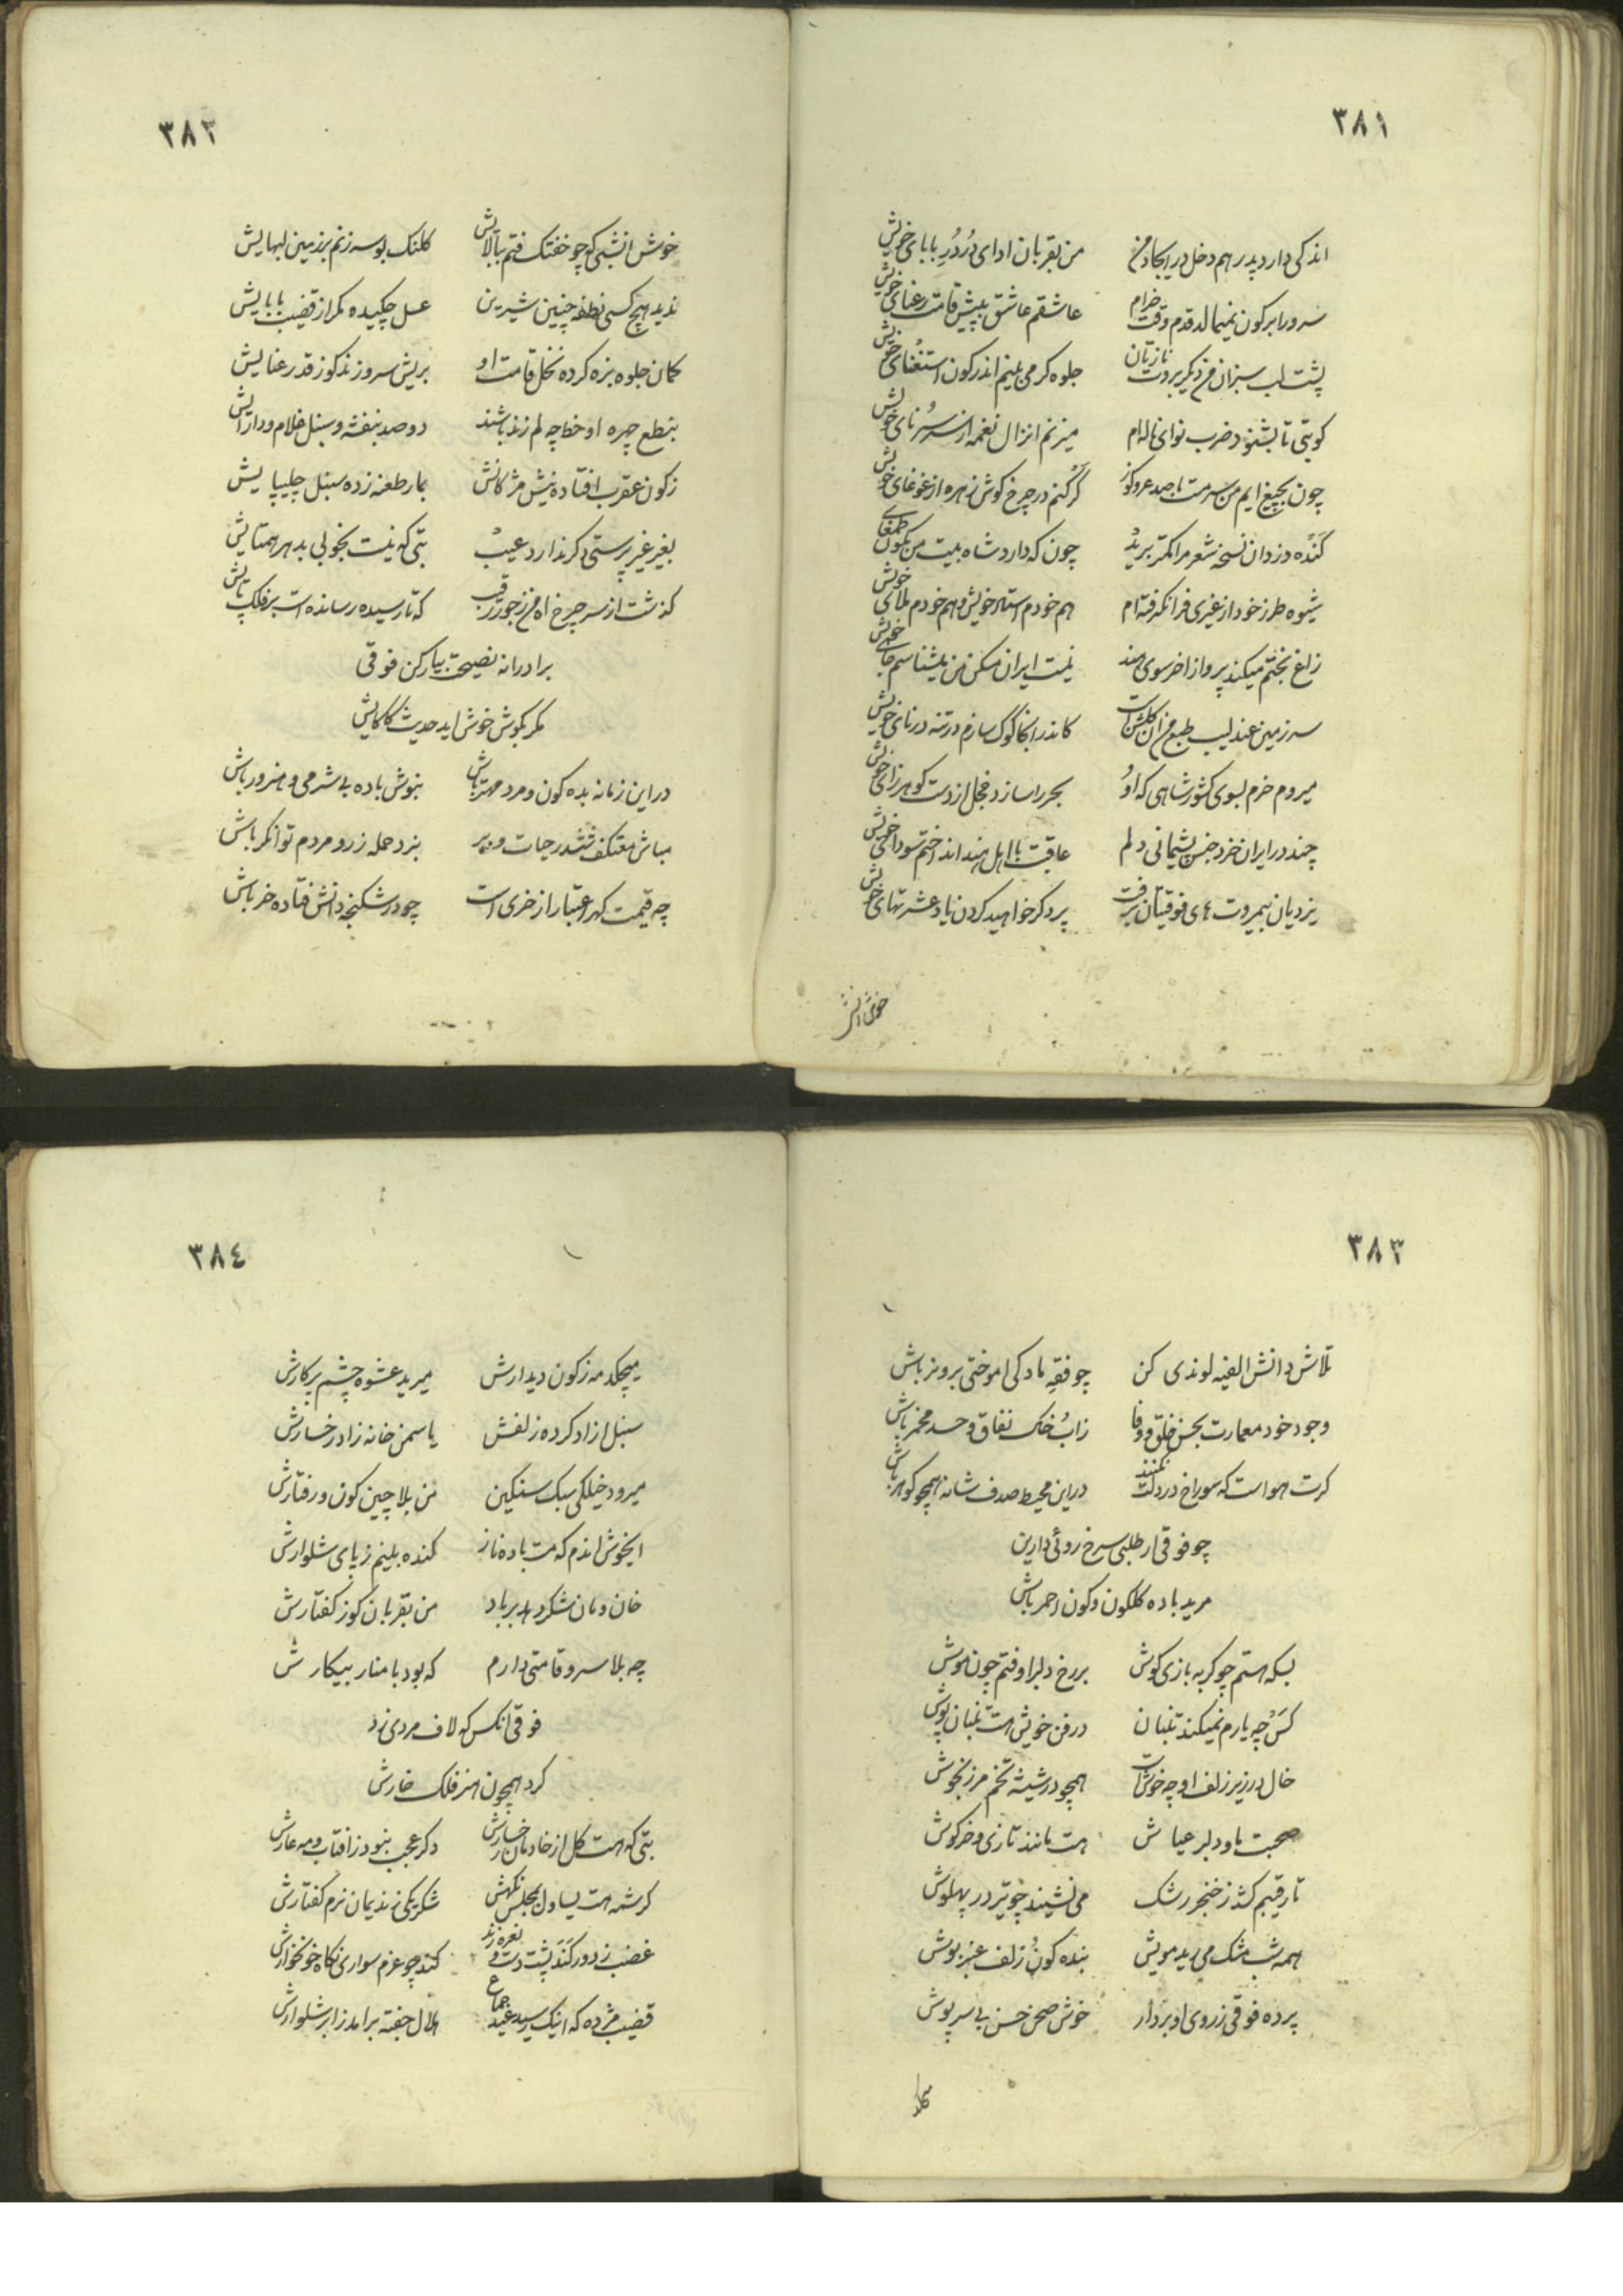 ۳۸۱
اندکی دارد پدر هم دخل در ایجاد من من بقربان ادای دُردُرِ بابای خویش
سرو را بر کون نمیمالد قدم وقت خرام عاشقم عاشق به پیش قامت رعنای خویش
پشت لب سبزان من دیگر بروت نازتان جلوه گر می بینم اندر کون استغنای خویش
کو بتی تا بشنود ضرب نوای ناله ام میزنم انزال نغمه از سُرنای خویش
چون بچیغ ایم من سرمت با صد عر و کوز کَر کنم در چرخ گوش زهره از غوغای خویش
کَنده دزدان نسخه شعر مرا کمتر برید چون که دارد شاه بیت من بکون طمغای خویش
شیوه طرز خود از غیری فرا نگرفته ام هم خودم استاد خویش و هم خودم ملای خویش
زاغ بختم میکند پرواز اخر سوی هند نیست ایران مسکن من میشناسم جای خویش
سرزمین عندلیب طبع من ان گلشن است کاندر انجا کوک سازم در تنه درنای خویش
میروم خرم بسوی کشور شاهی که اوُ بحر را سازد خجل از دست گوهرزای خویش
چند در ایران خرد جنس پشیمانی دلم عاقبت با اهل هند انداختم سودای خویش
یزدیان بیمروت های فوقیتان برفت پر دگر خواهید کردن یاد عشرتهای خویش
خوش انشی
۳۸۲
خوش انشبی که چو خفتک فتم ببالایش کلنک بوسه زنم بر زمین لبهایش
ندید هیچ کسی نطفه چنین شیرین عسل چکیده مگر از قضیب بابایش
کمان جلوه بزه کرده نخل قامت او بریش سرو زند گوز قد رعنایش
بنطع چهره او خط چه لم زند باشند دو صد بنفشه و سنبل غلام و دارایش
ز کون عقرب افتاده نیش مژگانش بمار طعنه زده سنبل چلیپایش
بغیر غیر پرستی دگر ندارد عیب بتی که نیست بخوبی بدهر همتایش
گذشت از سر چرخ اه من ز جور رقیب که تا رسیده رسانده است بر فلک پایش
برادرانه نصیحت بیار کن فوقی
مگر بگوش خوش اید حدیث کاکایش
در این زمانه بده کون و مرد مهتر باش بنوش باده بی شرمی و هنرور باش
مباش معتکف ششدر حیات و ممیر بنرد حمله زر و مردم توانگر باش
چه قیمت گهر اعتبار از خری است چو در شکنجه دانش فتاده خر باش
۳۸۳
تلاش دانش الفیه لوندی کن چو فقهِ مادگی اموختی برو نر باش
وجود خود معمارت بجنس خلق و وفا ز اب خاک نفاق و حسد مخمر باش
گرت هواست که سوراخ در دلت نکنند در این محیط صدف شانه همچو گوهر باش
چو فوقی ار طلبی سرخ روئی دارین
مرید باده گلگون و کون احمر باش
بسکه هستم چو گربه بازی گوش بر رخ دلبر اوفتم چون موش
کَس چه یارم نمیکند تنبان در فن خویش است تنبان پوش
خال در زیر زلف او چه خوش است همچو در شیشه تخم مرزنجوش
صحبت ما و دلبر عیاش هست مانند تازی و خرگوش
تا رقیبم کشد ز خنجر رشک می نشیند چو تیر در پهلوش
همه شب مشک می رید مویش بنده کون زلف عنبر بوش
پرده فوقی ز روی او بردار خوش صحن حسن بی سر پوش
۳۸٤
میچکد مه ز کون دیدارش میرید عشوه چشم پرکارش
سنبل ازاد کرده زلفش یاسمن خانه زاد رخسارش
میرود خیلکی سبک سنگین من بلا چین کون و رفتارش
ایخوش اندم که مست باده ناز کنده بینم ز پای شلوارش
خان و مان شکر دهد برباد من بقربان گوز گفتارش
چه بلا سرو قامتی دارم که بود با منار بیکارش
فوقی انکس که لاف مردی زد
کرد همچون هنر فلک خارش
بتی که هست گل از خادمان رخسارش دگر عجب نبود ز افتاب و مه عارش
کرشمه هست یساول بمجلس نگهش شکر یکی ز ندیمان نرم گفتارش
غضب ز دور کَنَد پشت دست و نعره زند کند چو عزم سواری نگاه خونخوارش
قضیب مژده که اینک رسید عید جماع هلال جفته برامد ز ابر شلوارش